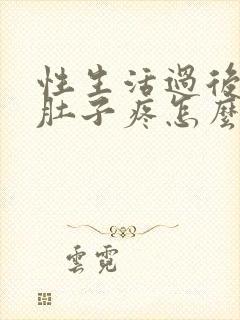 性生活過後
肚子疼怎麼
雲霓